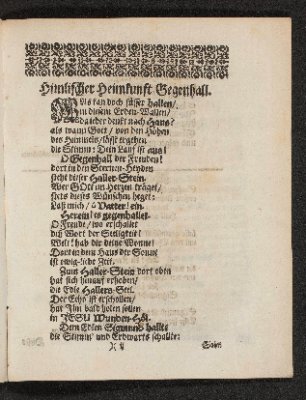 Himlischer Heimkunft Gegenhall.
Was kan doch süsser hallen/
in diesem Erden-Wallen/
da ieder denkt nach Haus?
als wann Gott/ von den Höhen
des Himmels/ lässt ergehen
die Stimm: Dein Lauf ist aus!
O Gegenhall der Freuden!
dort in den Sternen-Heyden
steht dieser Haller-Stein.
Wer GOtt im Herzen träget/
stets dieses Wünschen heget:
Laß mich/ ô Vatter/ ein.
Herein! es gegenhallet.
O Freude/ wo erschallet
diß Wort der Seeligkeit!
Welt! hab dir deine Wonne!
Dort in dem Haus der Sonne
ist ewig-liebe Zeit.
Zum Haller-Stein dort oben
hat sich hinauf erhoben/
die Edle Hallers-Seel.
Der Echo ist erschollen/
hat Ihn bald holen sollen
in JESU Wunden-Höl.
Dem Edlen Sigmund hallte
die Stimm' und Erdwarts schallte:
X ij
Sigm.